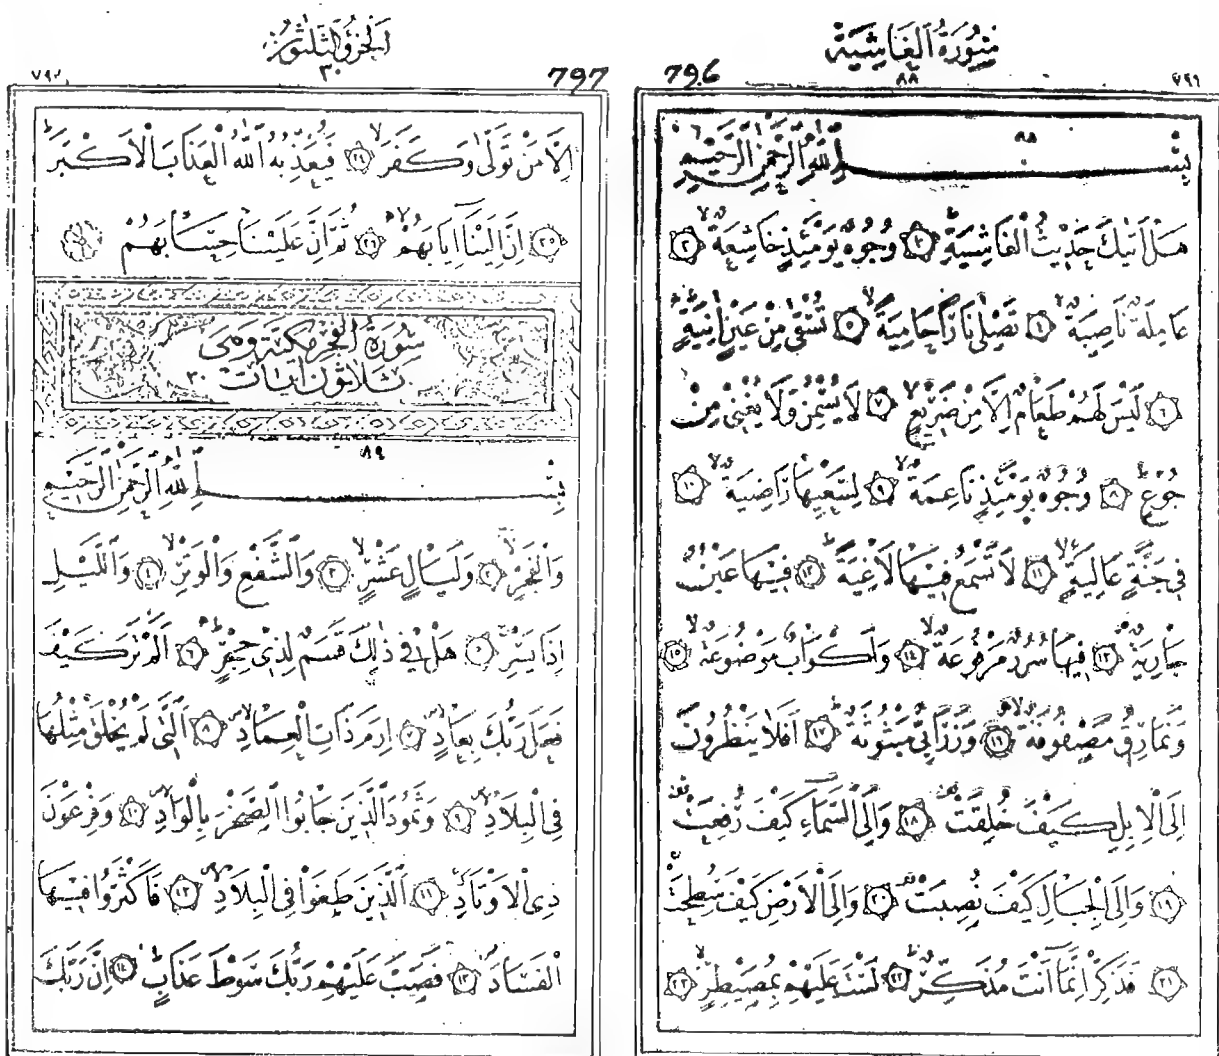 سُورَةُ الْغَاشِيَةِ
796 ٨٨ ٧٩٦
٨٨
بِسْمِ اللّٰهِ الرَّحْمٰنِ الرَّحِيْمِ
هَلْ اَتٰىكَ حَدِيْثُ الْغَاشِيَةِ ﴿٢﴾ وُجُوْهٌ يَّوْمَئِذٍ خَاشِعَةٌ ﴿٣﴾
عَامِلَةٌ نَّاصِبَةٌ ﴿٤﴾ تَصْلٰى نَارًا حَامِيَةً ﴿٥﴾ تُسْقٰى مِنْ عَيْنٍ اٰنِيَةٍ
﴿٦﴾ لَيْسَ لَهُمْ طَعَامٌ اِلَّا مِنْ ضَرِيْعٍ ﴿٧﴾ لَا يُسْمِنُ وَلَا يُغْنِيْ مِنْ
جُوْعٍ ﴿٨﴾ وُجُوْهٌ يَّوْمَئِذٍ نَّاعِمَةٌ ﴿٩﴾ لِسَعْيِهَا رَاضِيَةٌ ﴿١٠﴾
فِيْ جَنَّةٍ عَالِيَةٍ ﴿١١﴾ لَا تَسْمَعُ فِيْهَا لَاغِيَةً ﴿١٢﴾ فِيْهَا عَيْنٌ
جَارِيَةٌ ﴿١٣﴾ فِيْهَا سُرُرٌ مَّرْفُوْعَةٌ ﴿١٤﴾ وَاَكْوَابٌ مَّوْضُوْعَةٌ ﴿١٥﴾
وَنَمَارِقُ مَصْفُوْفَةٌ ﴿١٦﴾ وَزَرَابِيُّ مَبْثُوْثَةٌ ﴿١٧﴾ اَفَلَا يَنْظُرُوْنَ
اِلَى الْاِبِلِ كَيْفَ خُلِقَتْ ﴿١٨﴾ وَاِلَى السَّمَآءِ كَيْفَ رُفِعَتْ
﴿١٩﴾ وَاِلَى الْجِبَالِ كَيْفَ نُصِبَتْ ﴿٢٠﴾ وَاِلَى الْاَرْضِ كَيْفَ سُطِحَتْ
﴿٢١﴾ فَذَكِّرْ اِنَّمَآ اَنْتَ مُذَكِّرٌ ﴿٢٢﴾ لَسْتَ عَلَيْهِمْ بِمُصَيْطِرٍ ﴿٢٣﴾
اَلْجُزْؤُ الثَّلٰثُوْنَ
٣٠
797
اِلَّا مَنْ تَوَلّٰى وَكَفَرَ ﴿٢٤﴾ فَيُعَذِّبُهُ اللّٰهُ الْعَذَابَ الْاَكْبَرَ
﴿٢٥﴾ اِنَّ اِلَيْنَآ اِيَابَهُمْ ﴿٢٦﴾ ثُمَّ اِنَّ عَلَيْنَا حِسَابَهُمْ
سُوْرَةُ الْفَجْرِ مَكِّيَّةٌ وَهِيَ
ثَلَاثُوْنَ اٰيَات ٣٠
٨٩
بِسْمِ اللّٰهِ الرَّحْمٰنِ الرَّحِيْمِ
وَالْفَجْرِ ﴿٢﴾ وَلَيَالٍ عَشْرٍ ﴿٣﴾ وَالشَّفْعِ وَالْوَتْرِ ﴿٤﴾ وَالَّيْلِ
اِذَا يَسْرِ ﴿٥﴾ هَلْ فِيْ ذٰلِكَ قَسَمٌ لِّذِيْ حِجْرٍ ﴿٦﴾ اَلَمْ تَرَ كَيْفَ
فَعَلَ رَبُّكَ بِعَادٍ ﴿٧﴾ اِرَمَ ذَاتِ الْعِمَادِ ﴿٨﴾ الَّتِيْ لَمْ يُخْلَقْ مِثْلُهَا
فِي الْبِلَادِ ﴿٩﴾ وَثَمُوْدَ الَّذِيْنَ جَابُوا الصَّخْرَ بِالْوَادِ ﴿١٠﴾ وَفِرْعَوْنَ
ذِي الْاَوْتَادِ ﴿١١﴾ الَّذِيْنَ طَغَوْا فِي الْبِلَادِ ﴿١٢﴾ فَاَكْثَرُوْا فِيْهَا
الْفَسَادَ ﴿١٣﴾ فَصَبَّ عَلَيْهِمْ رَبُّكَ سَوْطَ عَذَابٍ ﴿١٤﴾ اِنَّ رَبَّكَ